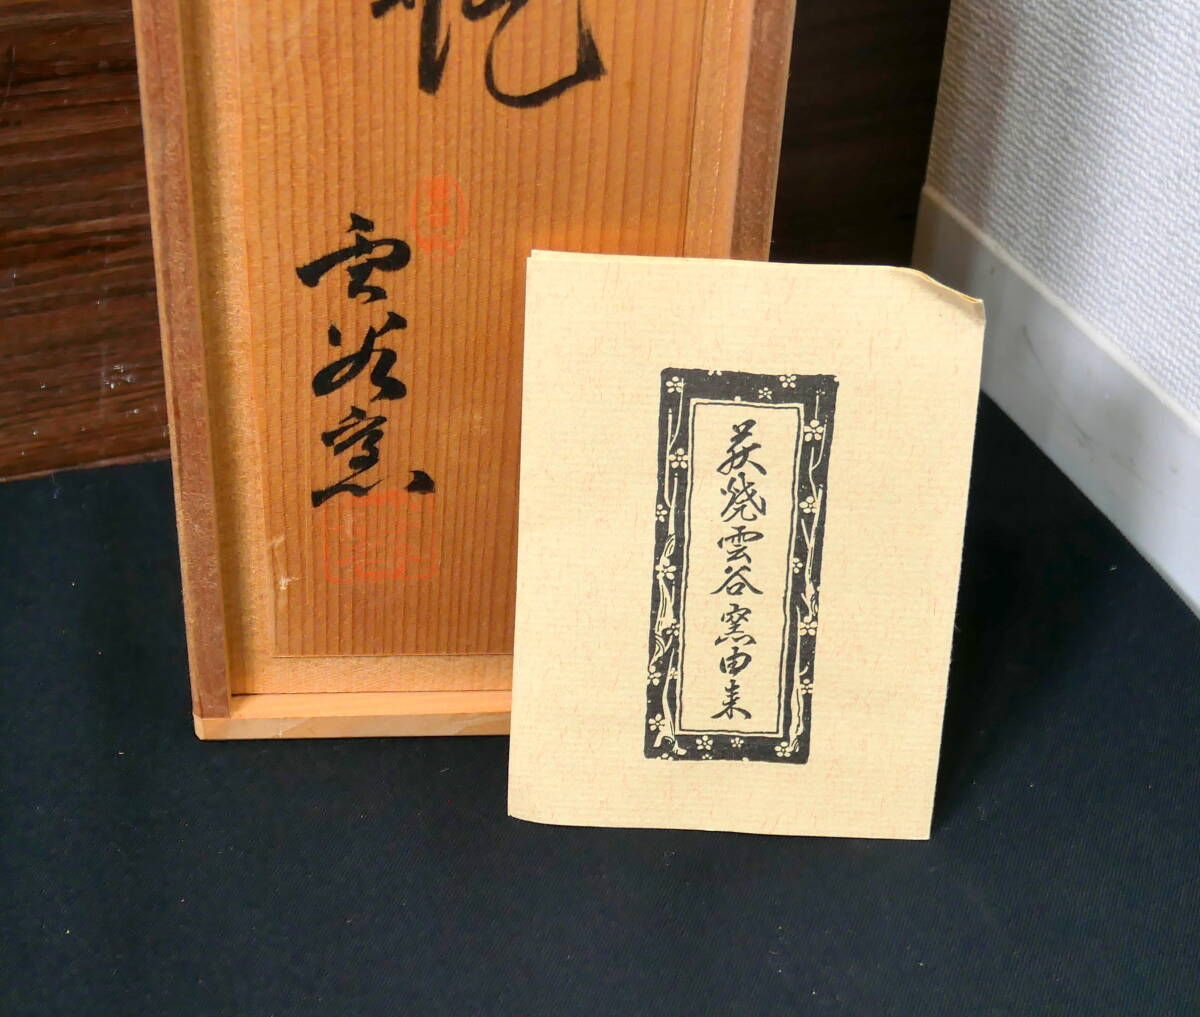 雲谷窯
萩焼雲谷窯由来